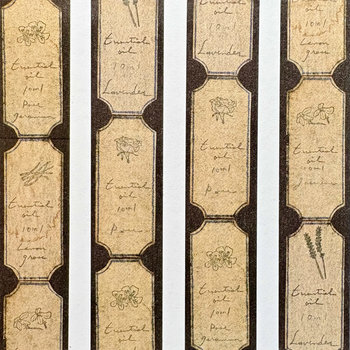 Essential
oil
10ml
Rose
geranium
Essential
oil
10ml
Lemon
grass
oil
10ml
Lavender
Essential
oil
10ml
Essential
oil
10ml
Lavender
Essential
oil
10ml
Essential
oil
10ml
Rose
geranium
Essential
oil
10ml
Lemon
grass
Essential
oil
10ml
Jasmine
Essential
oil
10ml
Lavender